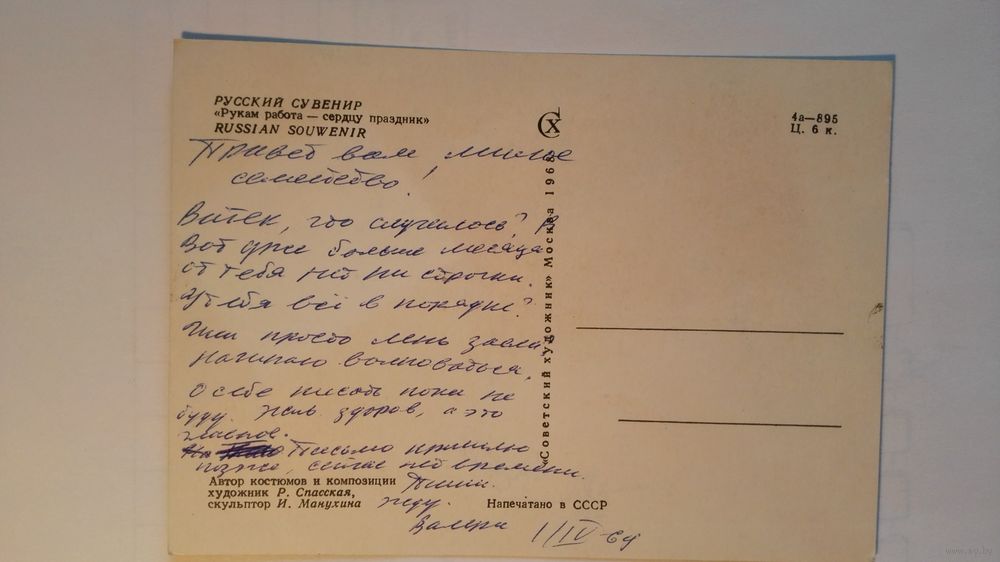 РУССКИЙ СУВЕНИР
«Рукам работа — сердцу праздник»
RUSSIAN SOUWENIR
Привет вам, милое
семейство!
Витек, что случилось? В
Вот уже больше месяца
от тебя нет ни строчки.
У тебя всё в порядке?
Или просто лень заела,
начинаю волноваться.
О себе писать пока не
буду. Жив, здоров, а это
главное.
Письмо пришлю
позже, сейчас нет времени.
Пиши.
жду.
Валера 1/IV 69
Автор костюмов и композиции
художник Р. Спасская,
скульптор И. Манухина
Напечатано в СССР
«Советский художник» Москва 1968
СХ
4а—895
Ц. 6 к.
www.ay.by